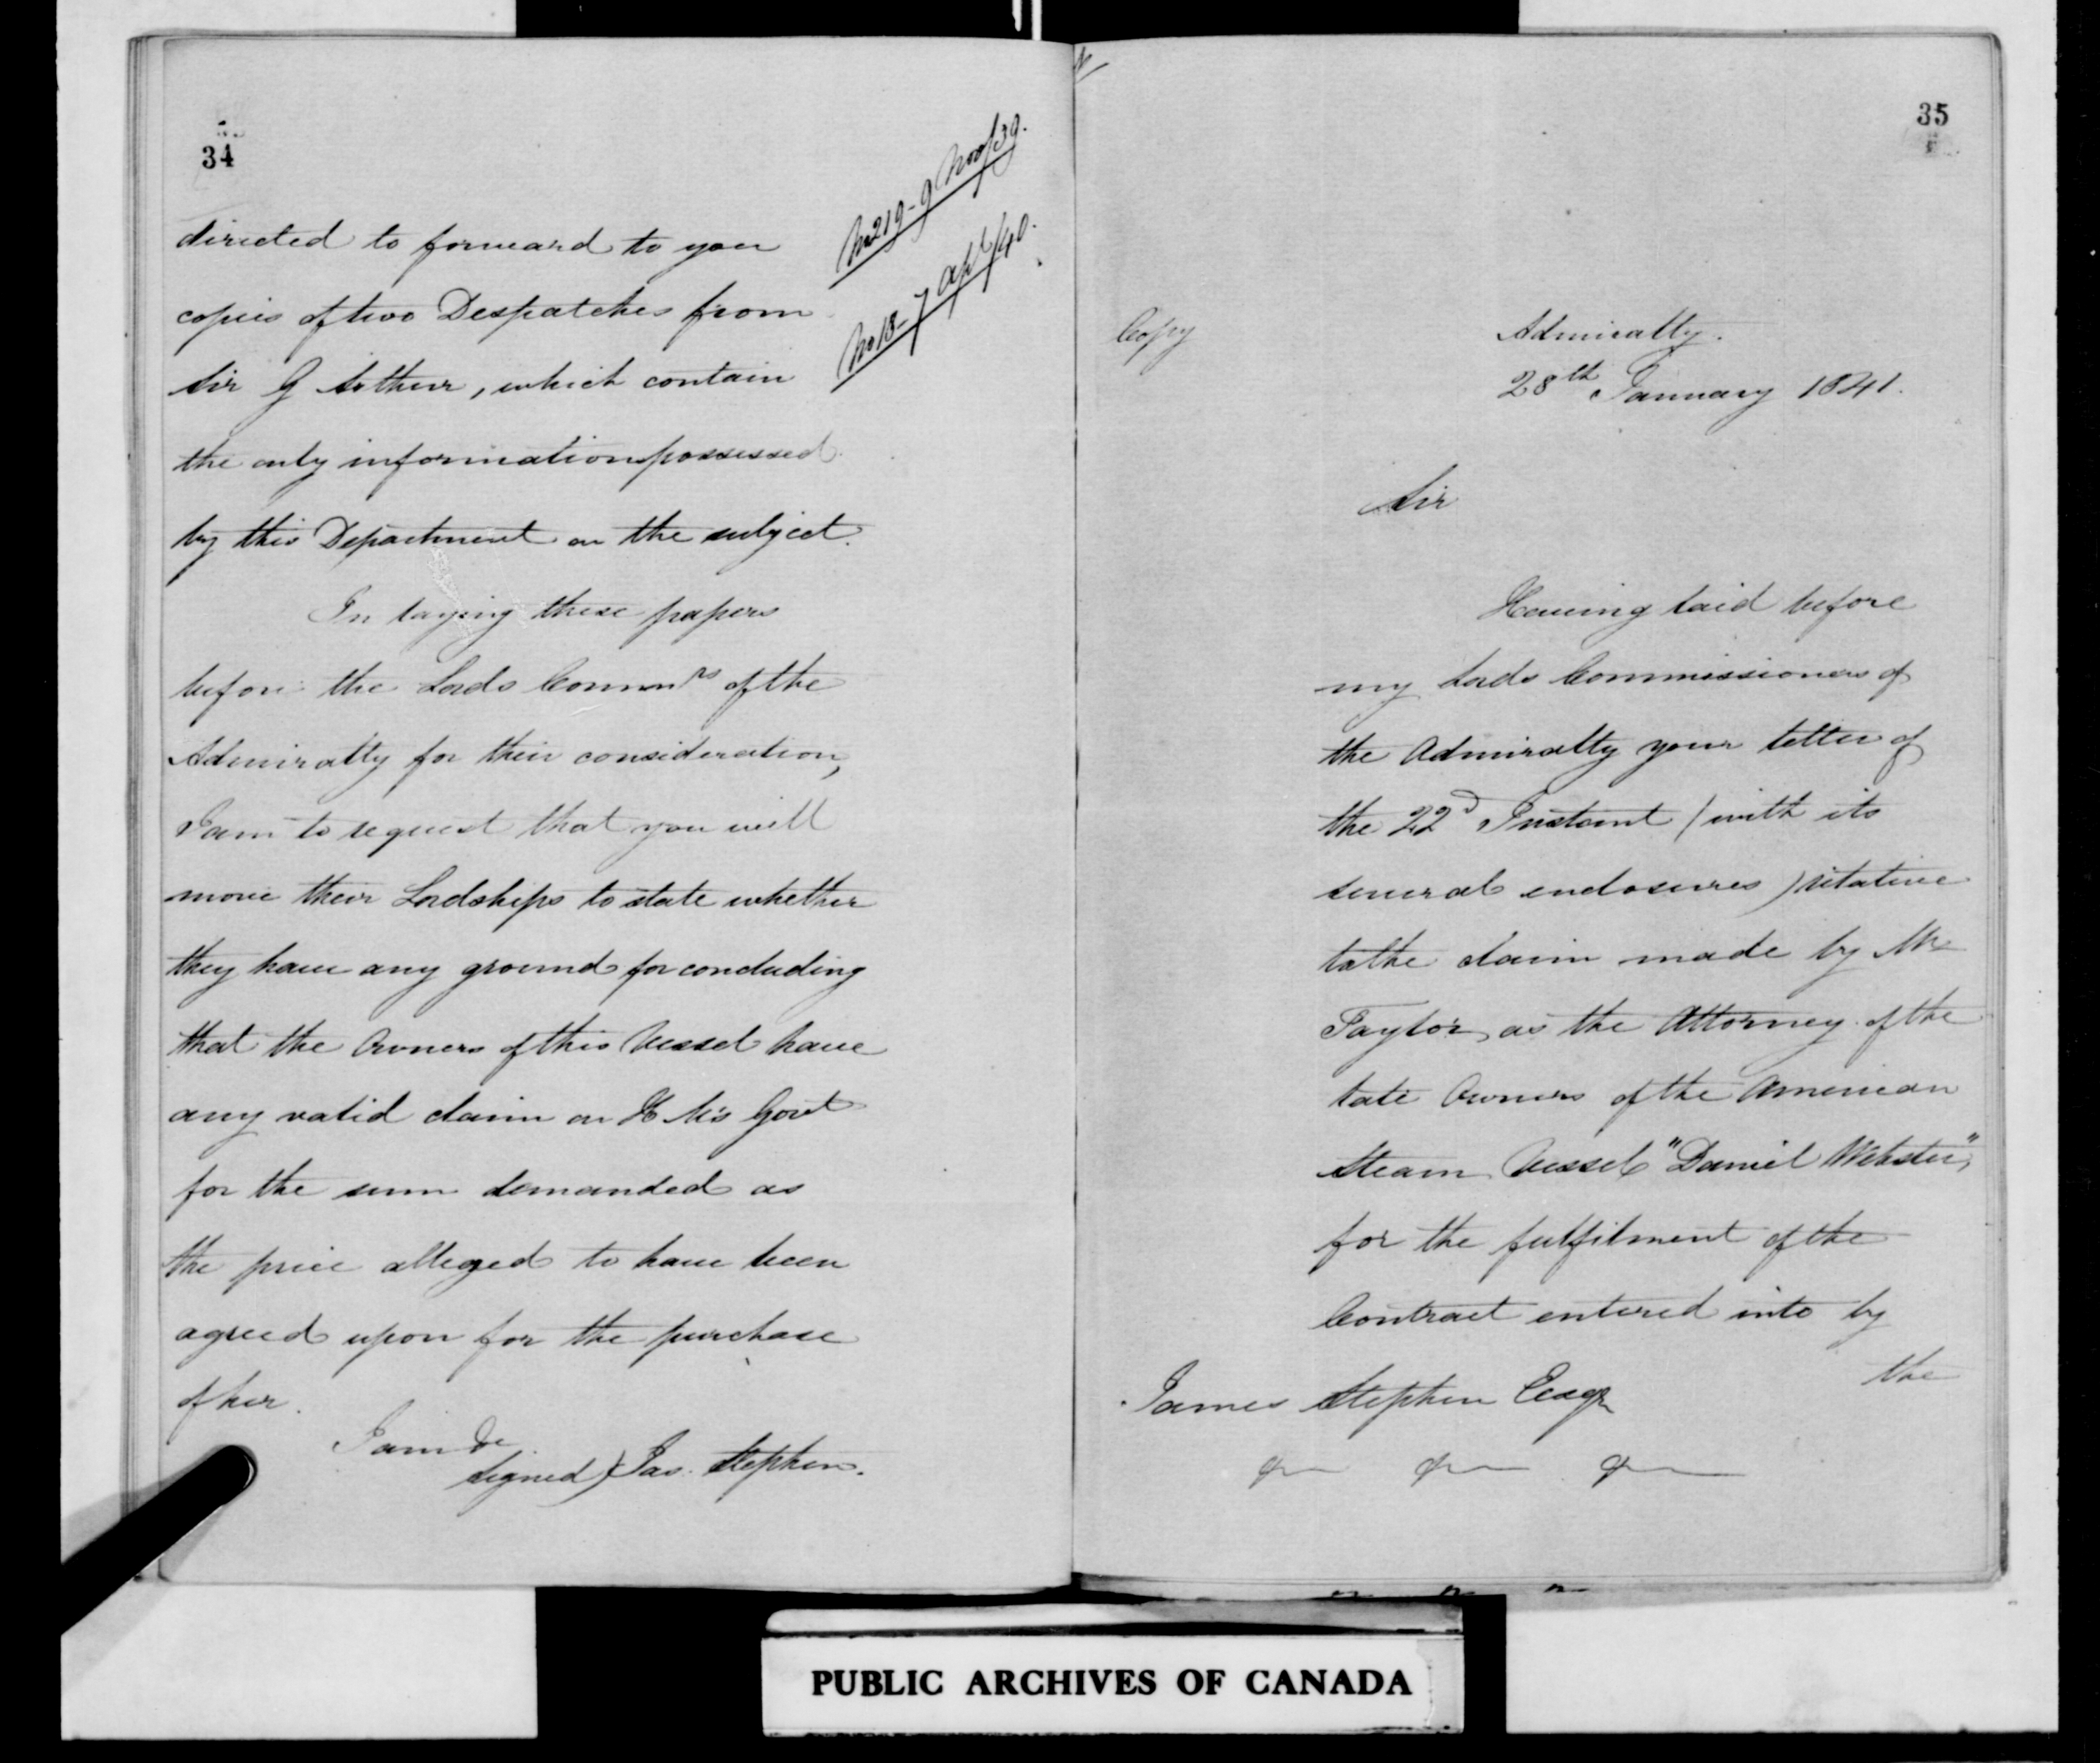 34
No 219 - 9 Nov/39.
No 13 - 7 Apl/40.
directed to forward to you
copies of two Despatches from
Sir G Arthur, which contain
the only information possessed
by this Department on the subject.
In laying these papers
before the Lords Commrs of the
Admiralty for their consideration,
I am to request that you will
move their Lordships to state whether
they have any ground for concluding
that the Owners of this Vessel have
any valid claim on H M's Govt
for the sum demanded as
the price alleged to have been
agreed upon for the purchase
of her.
I am &c
signed) Jas. Stephen.
35
Copy
Admiralty.
28th January 1841.
Sir
Having laid before
my Lords Commissioners of
the Admiralty your letter of
the 22d Instant (with its
several enclosures) relative
to the claim made by Mr
Taylor, as the Attorney of the
late Owners of the American
Steam Vessel "Daniel Webster",
for the fulfilment of the
Contract entered into by
the
James Stephen Esqr
PUBLIC ARCHIVES OF CANADA